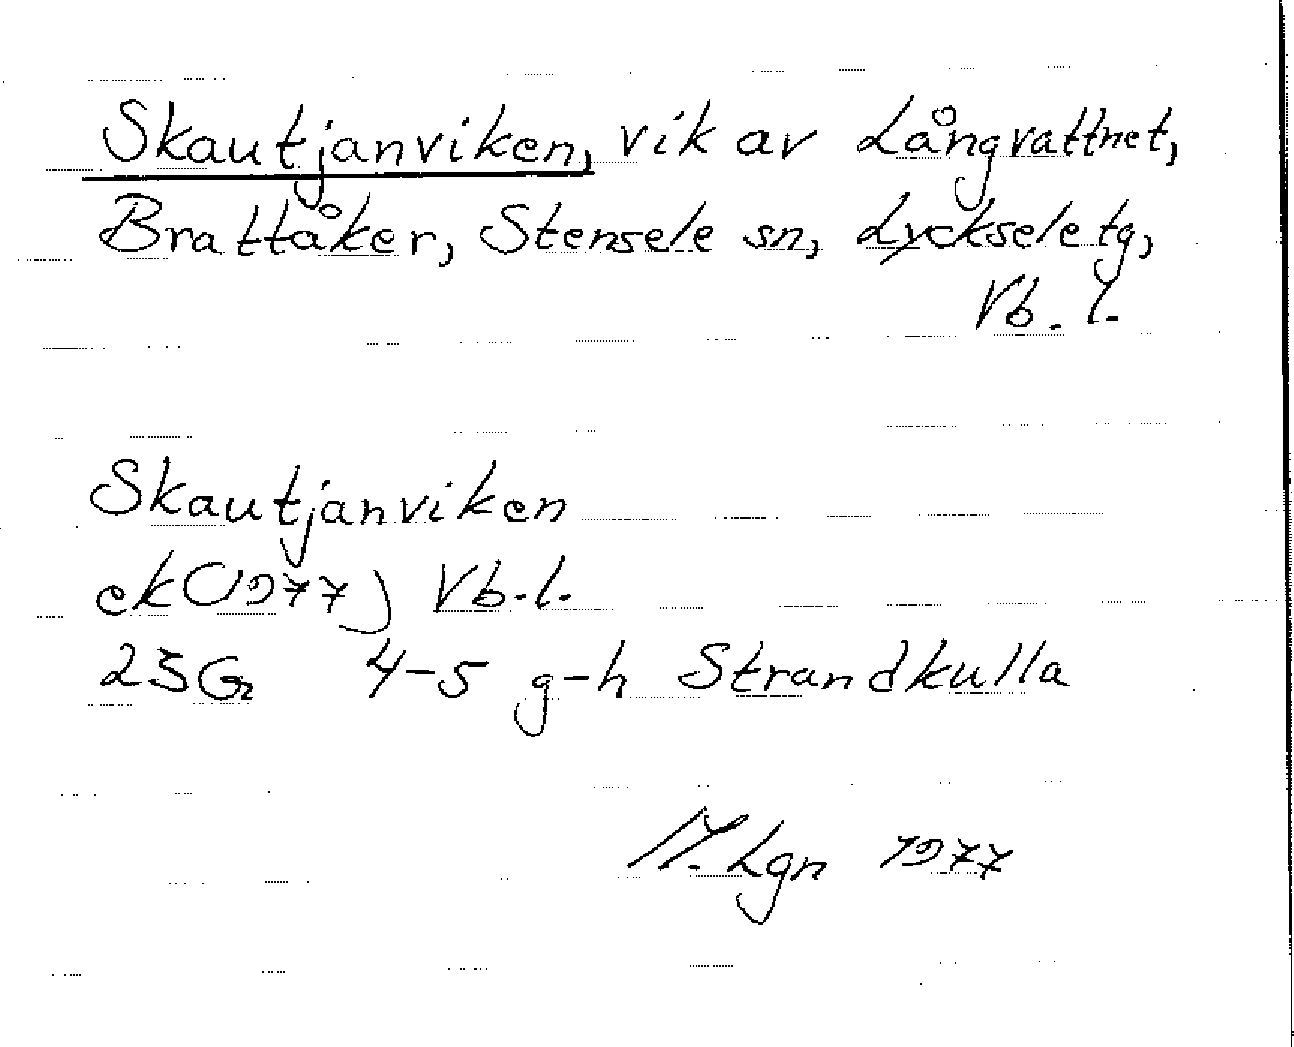 Skautjanviken, vik av Långvattnet,
Brattåker, Stensele sn, Lycksele tg,
Vb. l.
Skautjanviken
ek (1977) Vb. l.
23G 4-5 g-h Strandkulla
M. Lgn 1977